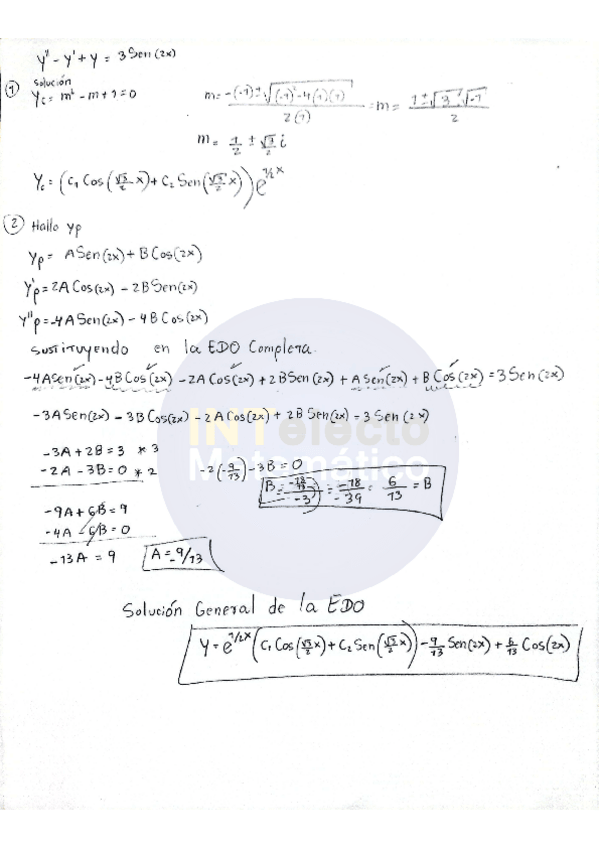 y'' - y' + y = 3 Sen(2x)
① Solución
Yc = m² - m + 1 = 0    m = -(-1) ± √(-1)² - 4(1)(1) / 2(1) = m = 1 ± √3 √-1 / 2
m = 1/2 ± √3/2 i
Yc = (C1 Cos(√3/2 x) + C2 Sen(√3/2 x)) e^1/2x
② Hallo yp
yp = A Sen(2x) + B Cos(2x)
y'p = 2A Cos(2x) - 2B Sen(2x)
y''p = -4A Sen(2x) - 4B Cos(2x)
Sustituyendo en la EDO Completa.
-4A Sen(2x) - 4B Cos(2x) - 2A Cos(2x) + 2B Sen(2x) + A Sen(2x) + B Cos(2x) = 3 Sen(2x)
-3A Sen(2x) - 3B Cos(2x) - 2A Cos(2x) + 2B Sen(2x) = 3 Sen(2x)
INTelecto
Matemático
-3A + 2B = 3 * 3
-2A - 3B = 0 * 2    -2(-9/13) - 3B = 0
B = -18/13 / -3) = -18/-39 = 6/13 = B
-9A + 6B = 9
-4A - 6B = 0
-13A = 9    A = -9/13
Solución General de la EDO
Y = e^1/2x (C1 Cos(√3/2 x) + C2 Sen(√3/2 x)) - 9/13 Sen(2x) + 6/13 Cos(2x)